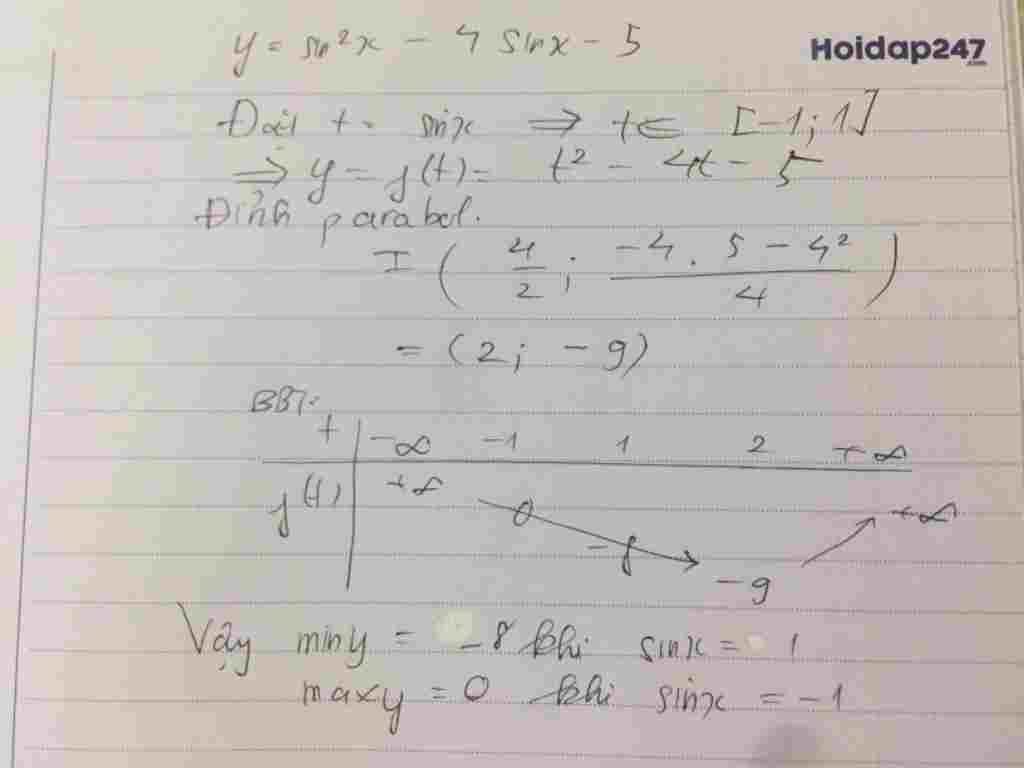 y = sin²x - 4 sinx - 5
Hoidap247
.com
Đặt t = sinx ⇒ t ∈ [-1; 1]
⇒ y = f(t) = t² - 4t - 5
Đỉnh parabol.
I ( 4/2 ; (-4. 5 - 4²)/4 )
= (2; -9)
BBT:
t | -∞ -1 1 2 +∞
f(t) | +∞ 0 -8 -9 +∞
Vậy miny = -8 khi sinx = 1
maxy = 0 khi sinx = -1